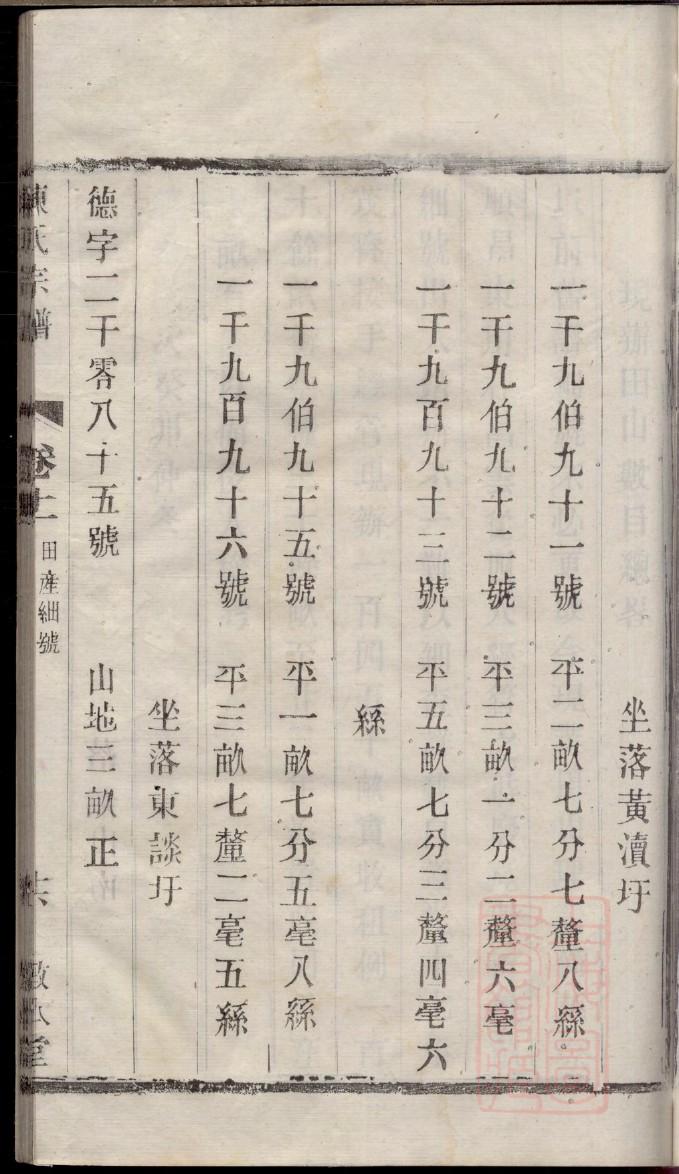 坐落黃瀆圩
一千九伯九十一號　平二畝七分七釐八絲
一千九伯九十二號　平三畝一分二釐六毫
一千九百九十三號　平五畝七分三釐四毫六
絲
一千九伯九十五號　平一畝七分五毫八絲
一千九百九十六號　平三畝七釐二毫五絲
坐落東談圩
德字二千零八十五號　山地三畝正
陳氏宗譜　卷十一　田產細號　敦本堂